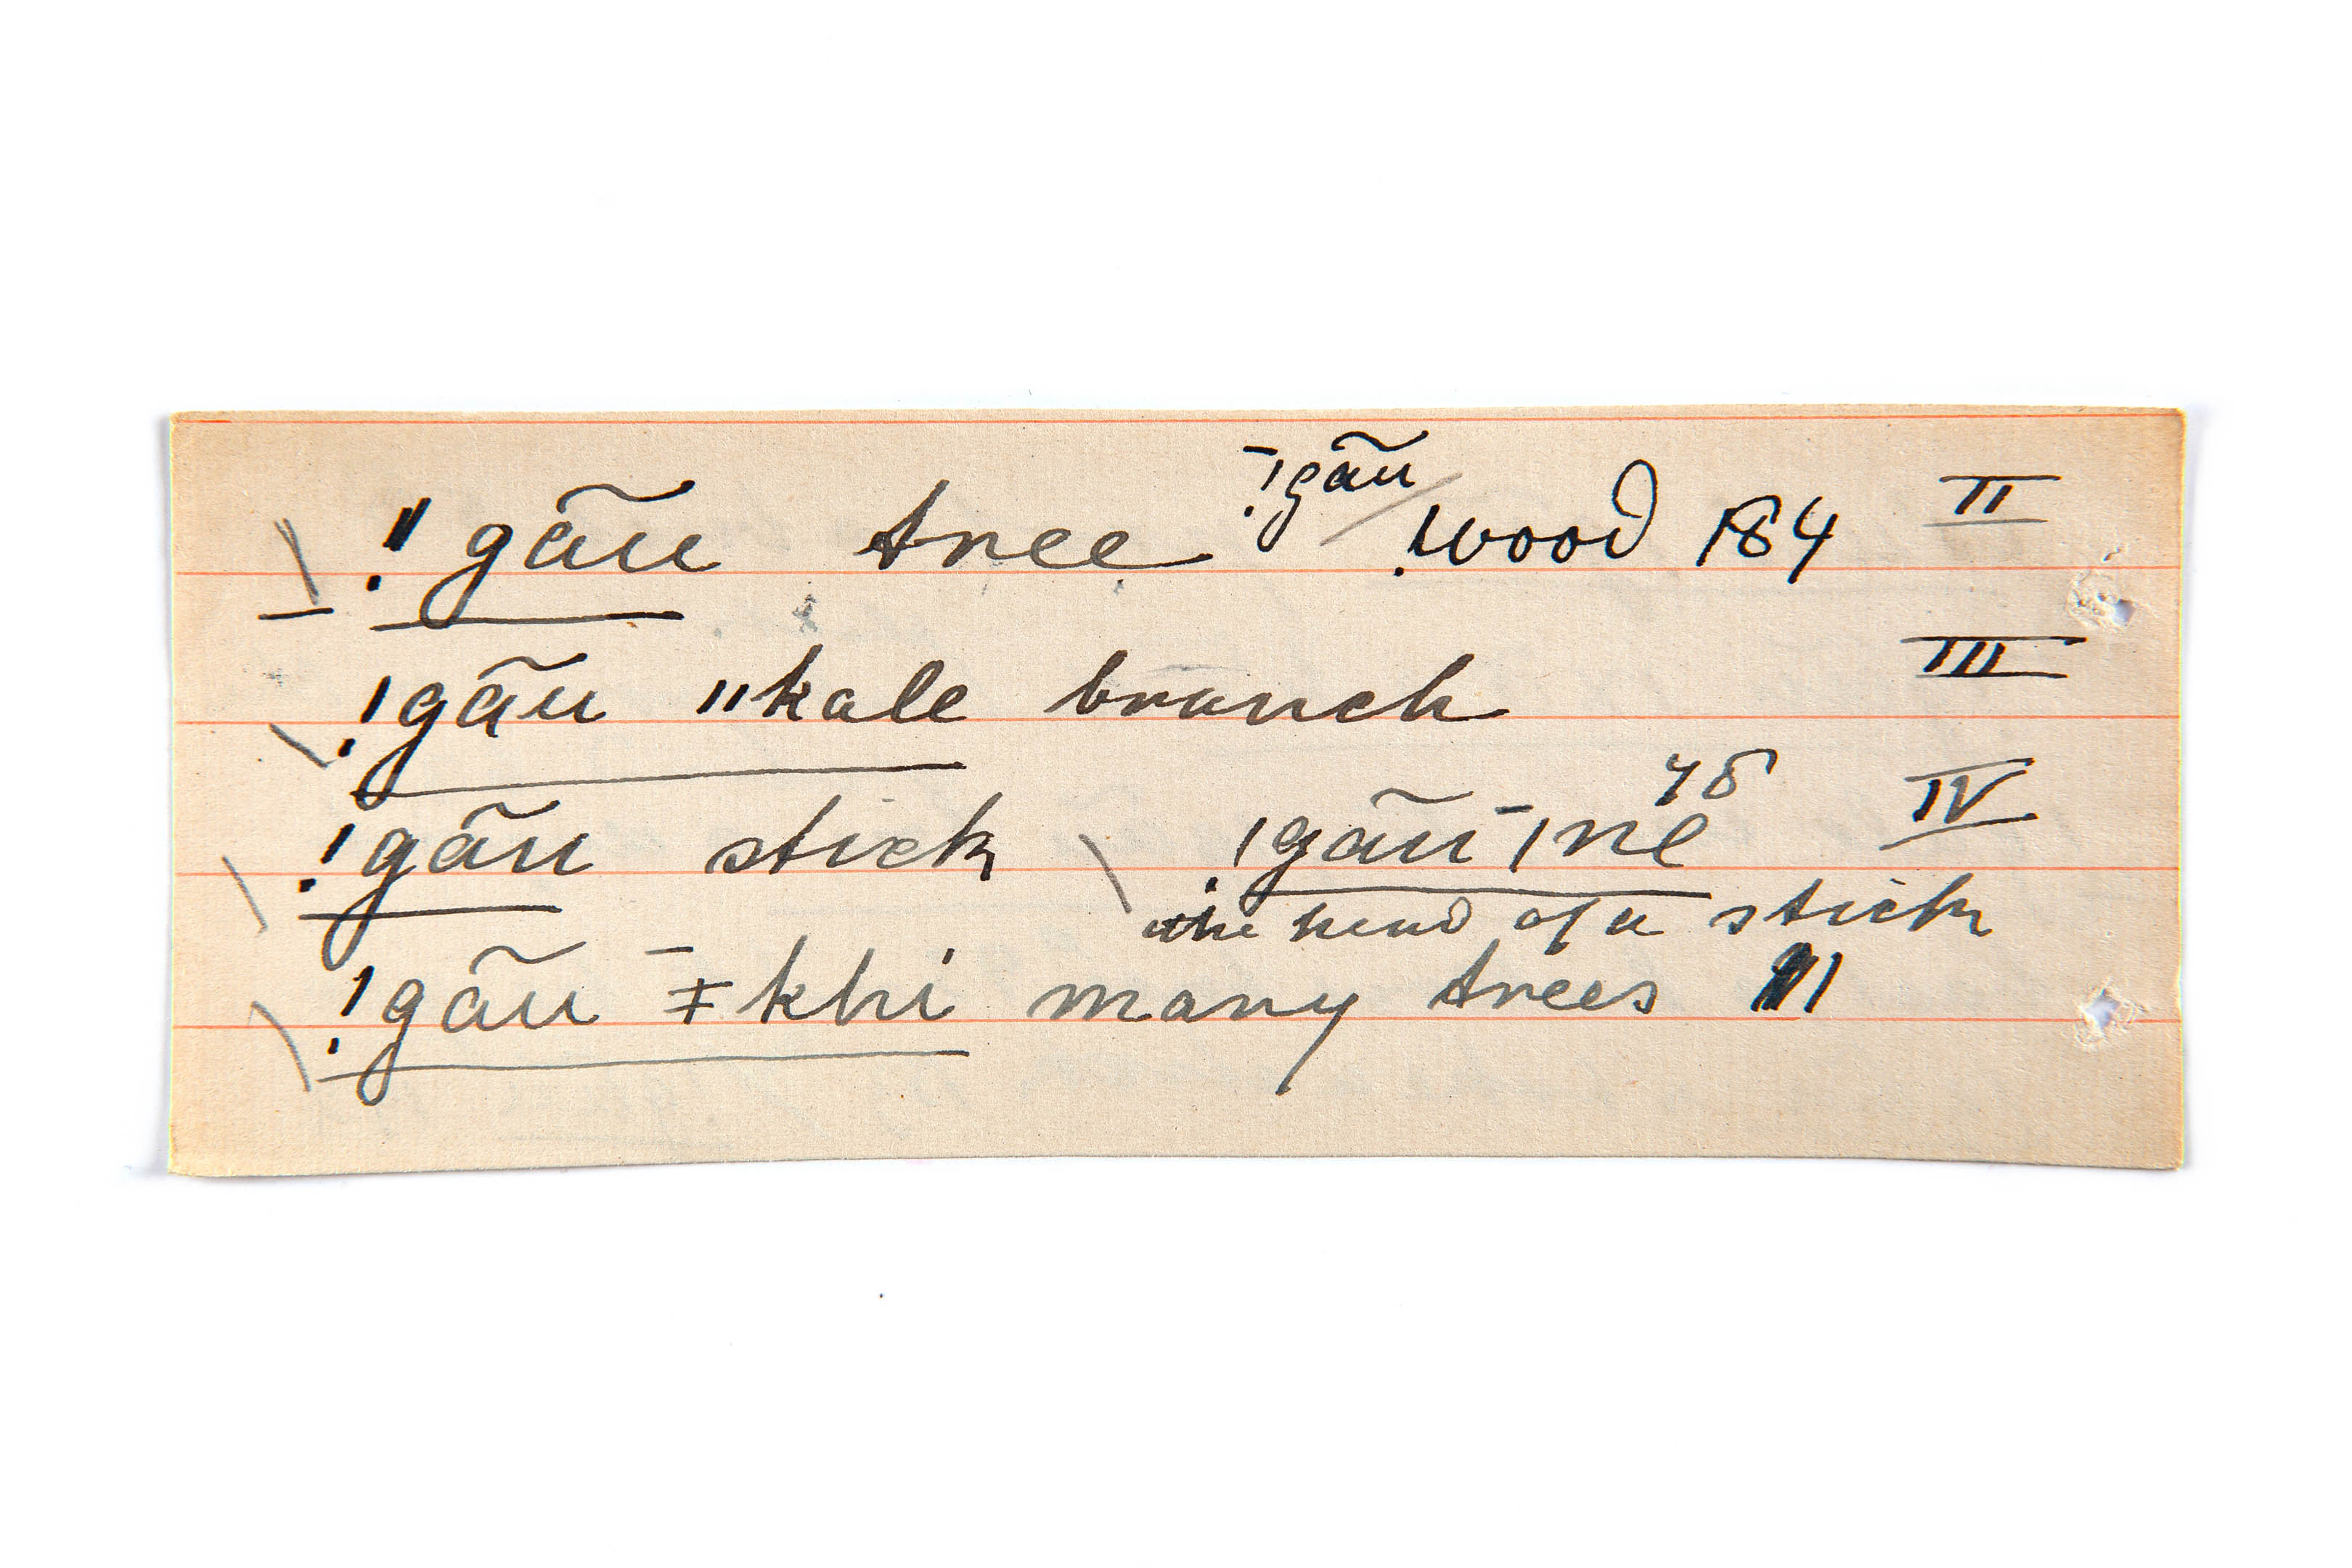 !gãũ tree ¯!gãũ wood 184 II
!gãũ ǁkale branch III
!gãũ stick !gãũ ¯ǀne 48 IV
the head of a stick
!gãũ ¯ǂkhi many trees